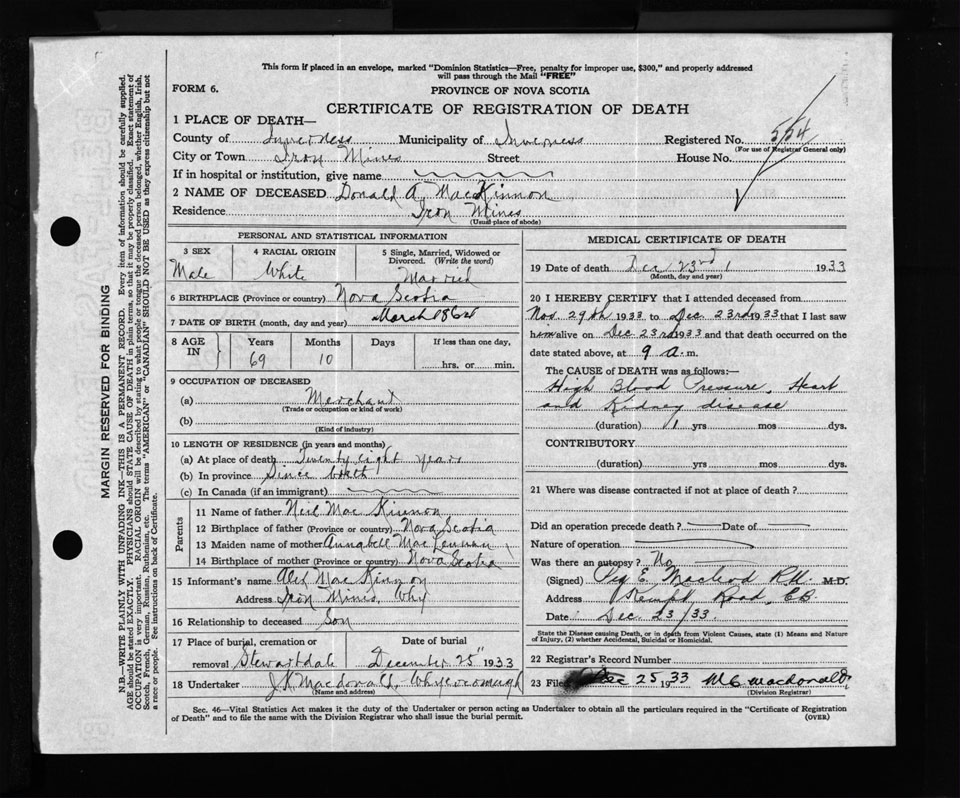 This form if placed in an envelope, marked "Dominion Statistics—Free, penalty for improper use, $300," and properly addressed
will pass through the Mail "FREE"
FORM 6.
PROVINCE OF NOVA SCOTIA
CERTIFICATE OF REGISTRATION OF DEATH
1 PLACE OF DEATH—
County of Inverness Municipality of Inverness Registered No. 554
(For use of Registrar General only)
City or Town Iron Mines Street House No.
If in hospital or institution, give name
2 NAME OF DECEASED Donald A. MacKinnon
Residence Iron Mines
(Usual place of abode)
PERSONAL AND STATISTICAL INFORMATION
3 SEX 4 RACIAL ORIGIN 5 Single, Married, Widowed or
Divorced. (Write the word)
Male White Married
6 BIRTHPLACE (Province or country) Nova Scotia
7 DATE OF BIRTH (month, day and year) March 1864
8 AGE IN Years Months Days If less than one day,
69 10 hrs. or min.
9 OCCUPATION OF DECEASED
(a) Merchant
(Trade or occupation or kind of work)
(b)
(Kind of industry)
10 LENGTH OF RESIDENCE (in years and months)
(a) At place of death Twenty eight years
(b) In province Since birth
(c) In Canada (if an immigrant)
Parents
11 Name of father Neil Mac Kinnon
12 Birthplace of father (Province or country) Nova Scotia
13 Maiden name of mother Annabell MacLennan
14 Birthplace of mother (Province or country) Nova Scotia
15 Informant's name Alex Mac Kinnon
Address Iron Mines, Why
16 Relationship to deceased Son
17 Place of burial, cremation or Date of burial
removal Stewartdale December 25" 1933
18 Undertaker J.K. Macdonald, Whycocomagh
(Name and address)
MEDICAL CERTIFICATE OF DEATH
19 Date of death Dec 23rd 1933
(Month, day and year)
20 I HEREBY CERTIFY that I attended deceased from
Nov. 29th 1933 to Dec. 23rd 1933 that I last saw
him alive on Dec 23rd 1933 and that death occurred on the
date stated above, at 9 a.m.
The CAUSE of DEATH was as follows:—
High Blood Pressure, Heart
and Kidney disease
(duration) 1 yrs mos dys.
CONTRIBUTORY
(duration) yrs mos dys.
21 Where was disease contracted if not at place of death?
Did an operation precede death? Date of
Nature of operation
Was there an autopsy? No
(Signed) E. Macleod R.N. M.D.
Address Kempt Road, C.B.
Date Dec. 23/33.
State the Disease causing Death, or in death from Violent Causes, state (1) Means and Nature
of Injury, (2) whether Accidental, Suicidal or Homicidal.
22 Registrar's Record Number
23 Filed Dec 25 1933 M C Macdonald
(Division Registrar)
Sec. 46—Vital Statistics Act makes it the duty of the Undertaker or person acting as Undertaker to obtain all the particulars required in the "Certificate of Registration
of Death" and to file the same with the Division Registrar who shall issue the burial permit. (OVER)
MARGIN RESERVED FOR BINDING
N.B.—WRITE PLAINLY WITH UNFADING INK—THIS IS A PERMANENT RECORD. Every item of information should be carefully supplied.
AGE should be stated EXACTLY. PHYSICIANS should STATE CAUSE OF DEATH in plain terms, so that it may be properly classified. Exact statement of
OCCUPATION is very important. RACIAL ORIGIN will be described by stating to what people or tongue the deceased person belonged, whether English, Irish,
Scotch, French, German, Russian, Ruthenian, etc. The terms "AMERICAN" or "CANADIAN" SHOULD NOT BE USED as they express citizenship but not
a race or people. See instructions on back of Certificate.